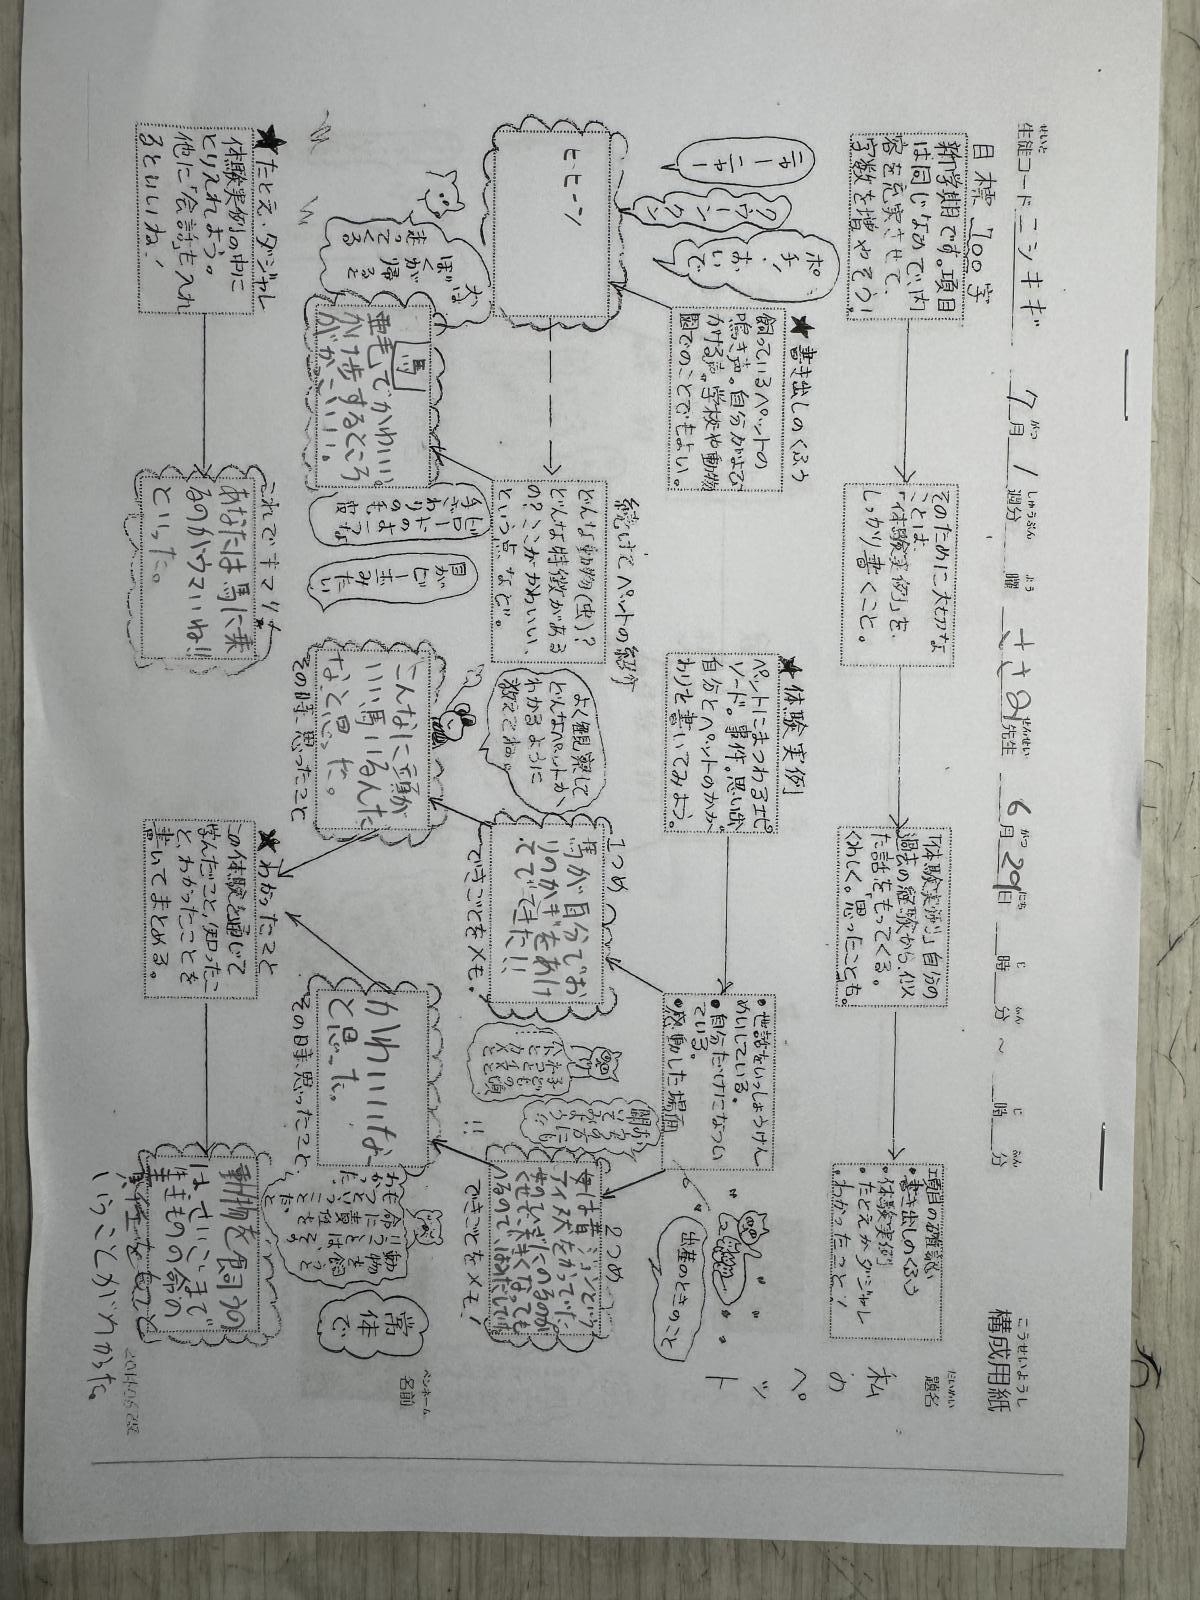 構成用紙
こうせいようし
生徒コード ニシキギ 7月1週分 曜 ささの先生 6月29日 時 分 ～ 時 分
題名
だいめい
私のペット
ペンネーム
名前
目標 700字
新学期です。項目
は同じなので、内
容を充実させて、
字数を増やそう！
そのために大切な
ことは、
「体験実例」を、
しっかり書くこと。
「体験実例」自分の
過去の経験から、似
た話をもってくる。
くわしく。思ったことも。
項目の確認
・書き出しのくふう
・体験実例
・たとえかダジャレ
・わかったこと！
★書き出しのくふう
飼っているペットの
鳴き声。自分がよび
かける声。学校や動物
園でのことでもよい。
ニャーニャー
クゥーンクン
ポチ！おいで
ヒヒーン
★体験実例
ペットにまつわるエピ
ソード。事件。思い出。
自分とペットのかか
わりを書いてみよう。
・世話をいっしょうけん
めいしている。
・自分だけになつい
ている。
・感動した場面
出産のときのこと
続けてペットの紹介
どんな動物(虫)？
どんな特徴がある
の？ここがかわいい、
という点など。
よく観察して
どんなペットか
わかるように
教えてね。
馬
かけ歩するところ
がかっこいい!!
ビロードのような
手ざわりの毛皮
目がビー玉みたい
ぼくが帰ると
走ってくる
1つめ
馬が自分でお
りのかぎをあけ
てでてきた!!
できごとをメモ。
2つめ
できごとをメモ！
こんなに頭が
いい馬いるんだ
なと思った。
その時、思ったこと
かわいいなー
と思った。
その時、思ったこと
常体で
★たとえ・ダジャレ
体験実例の中に
とりいれよう。
他に「会話」も入れ
るといいね！
これでキマリ！
あなたは馬に乗
るのがウマいね!!
といった。
★わかったこと
この体験を通じて
学んだこと、知ったこ
と、わかったことを
書いてまとめる。
動物を飼うの
はさいごまで
生きものの命の
責任をもつと
いうことがわかった。